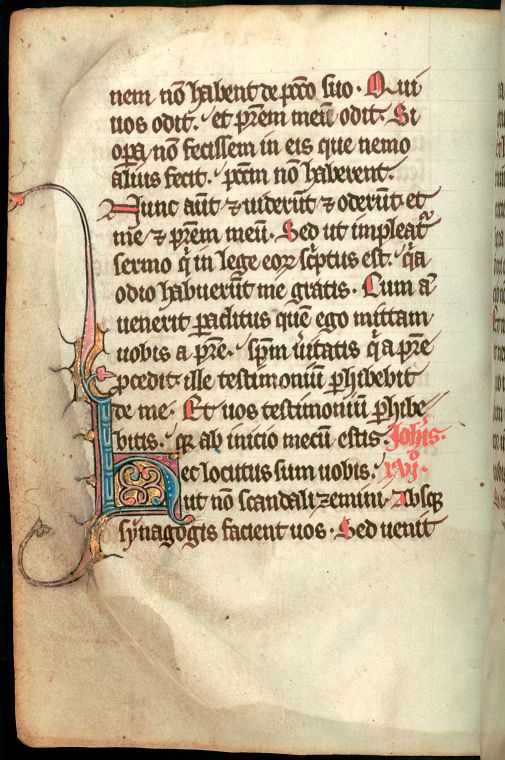 nem nō habent de pccō suo. Qui
uos odit. et prēm meū odit. Si
opa nō fecissem in eis que nemo
alius fecit. pccm nō haberent.
Nunc aūt ⁊ uiderūt ⁊ oderūt et
me ⁊ prēm meū. Sed ut impleat᷑
sermo q̄ in lege eoꝝ sc̄ptus est. q̄a
odio habuerūt me gratis. Cum aū
uenerit paclitus quē ego mittam
uobis a prē. sp̄m ūitatis q̄ a prē
pcedit. ille testimoniū phibebit
de me. Et uos testimoniū phibe
bitis. q̄ ab inicio mecū estis. Joh̄is.
Hec locutus sum uobis. xvjº.
ut nō scandalizemini. Absq̄
synagogis facient uos. Sed uenit